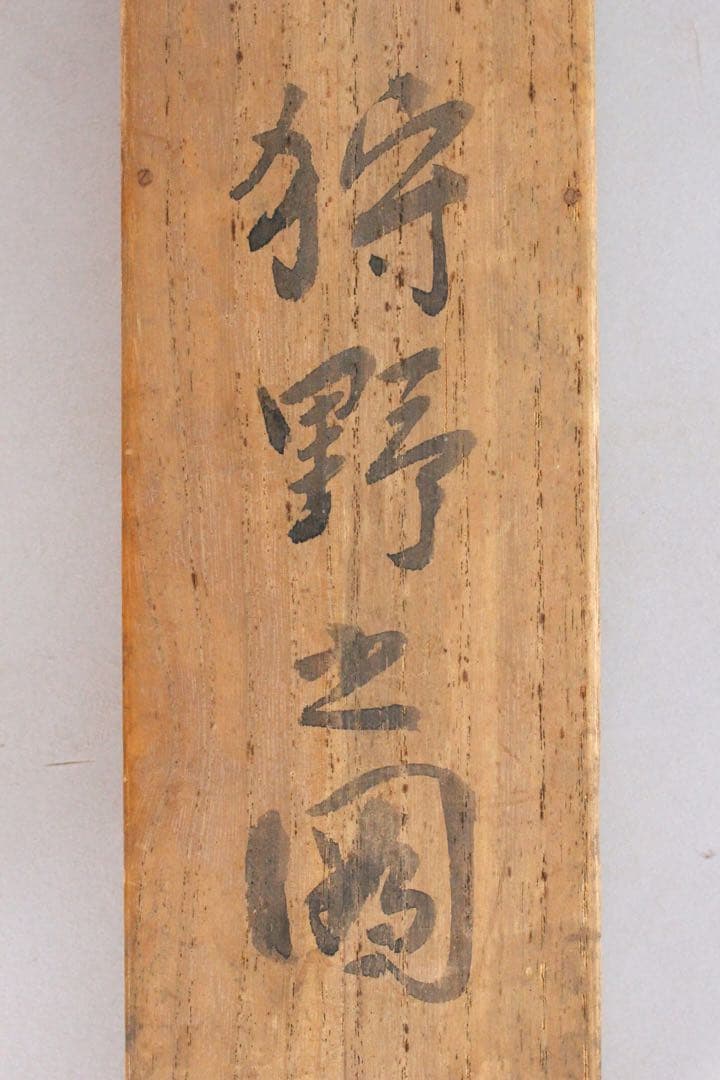 狩野之圖